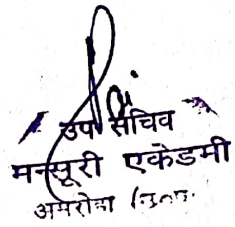 उप सचिव
मन्सूरी एकेडमी
अमरोहा